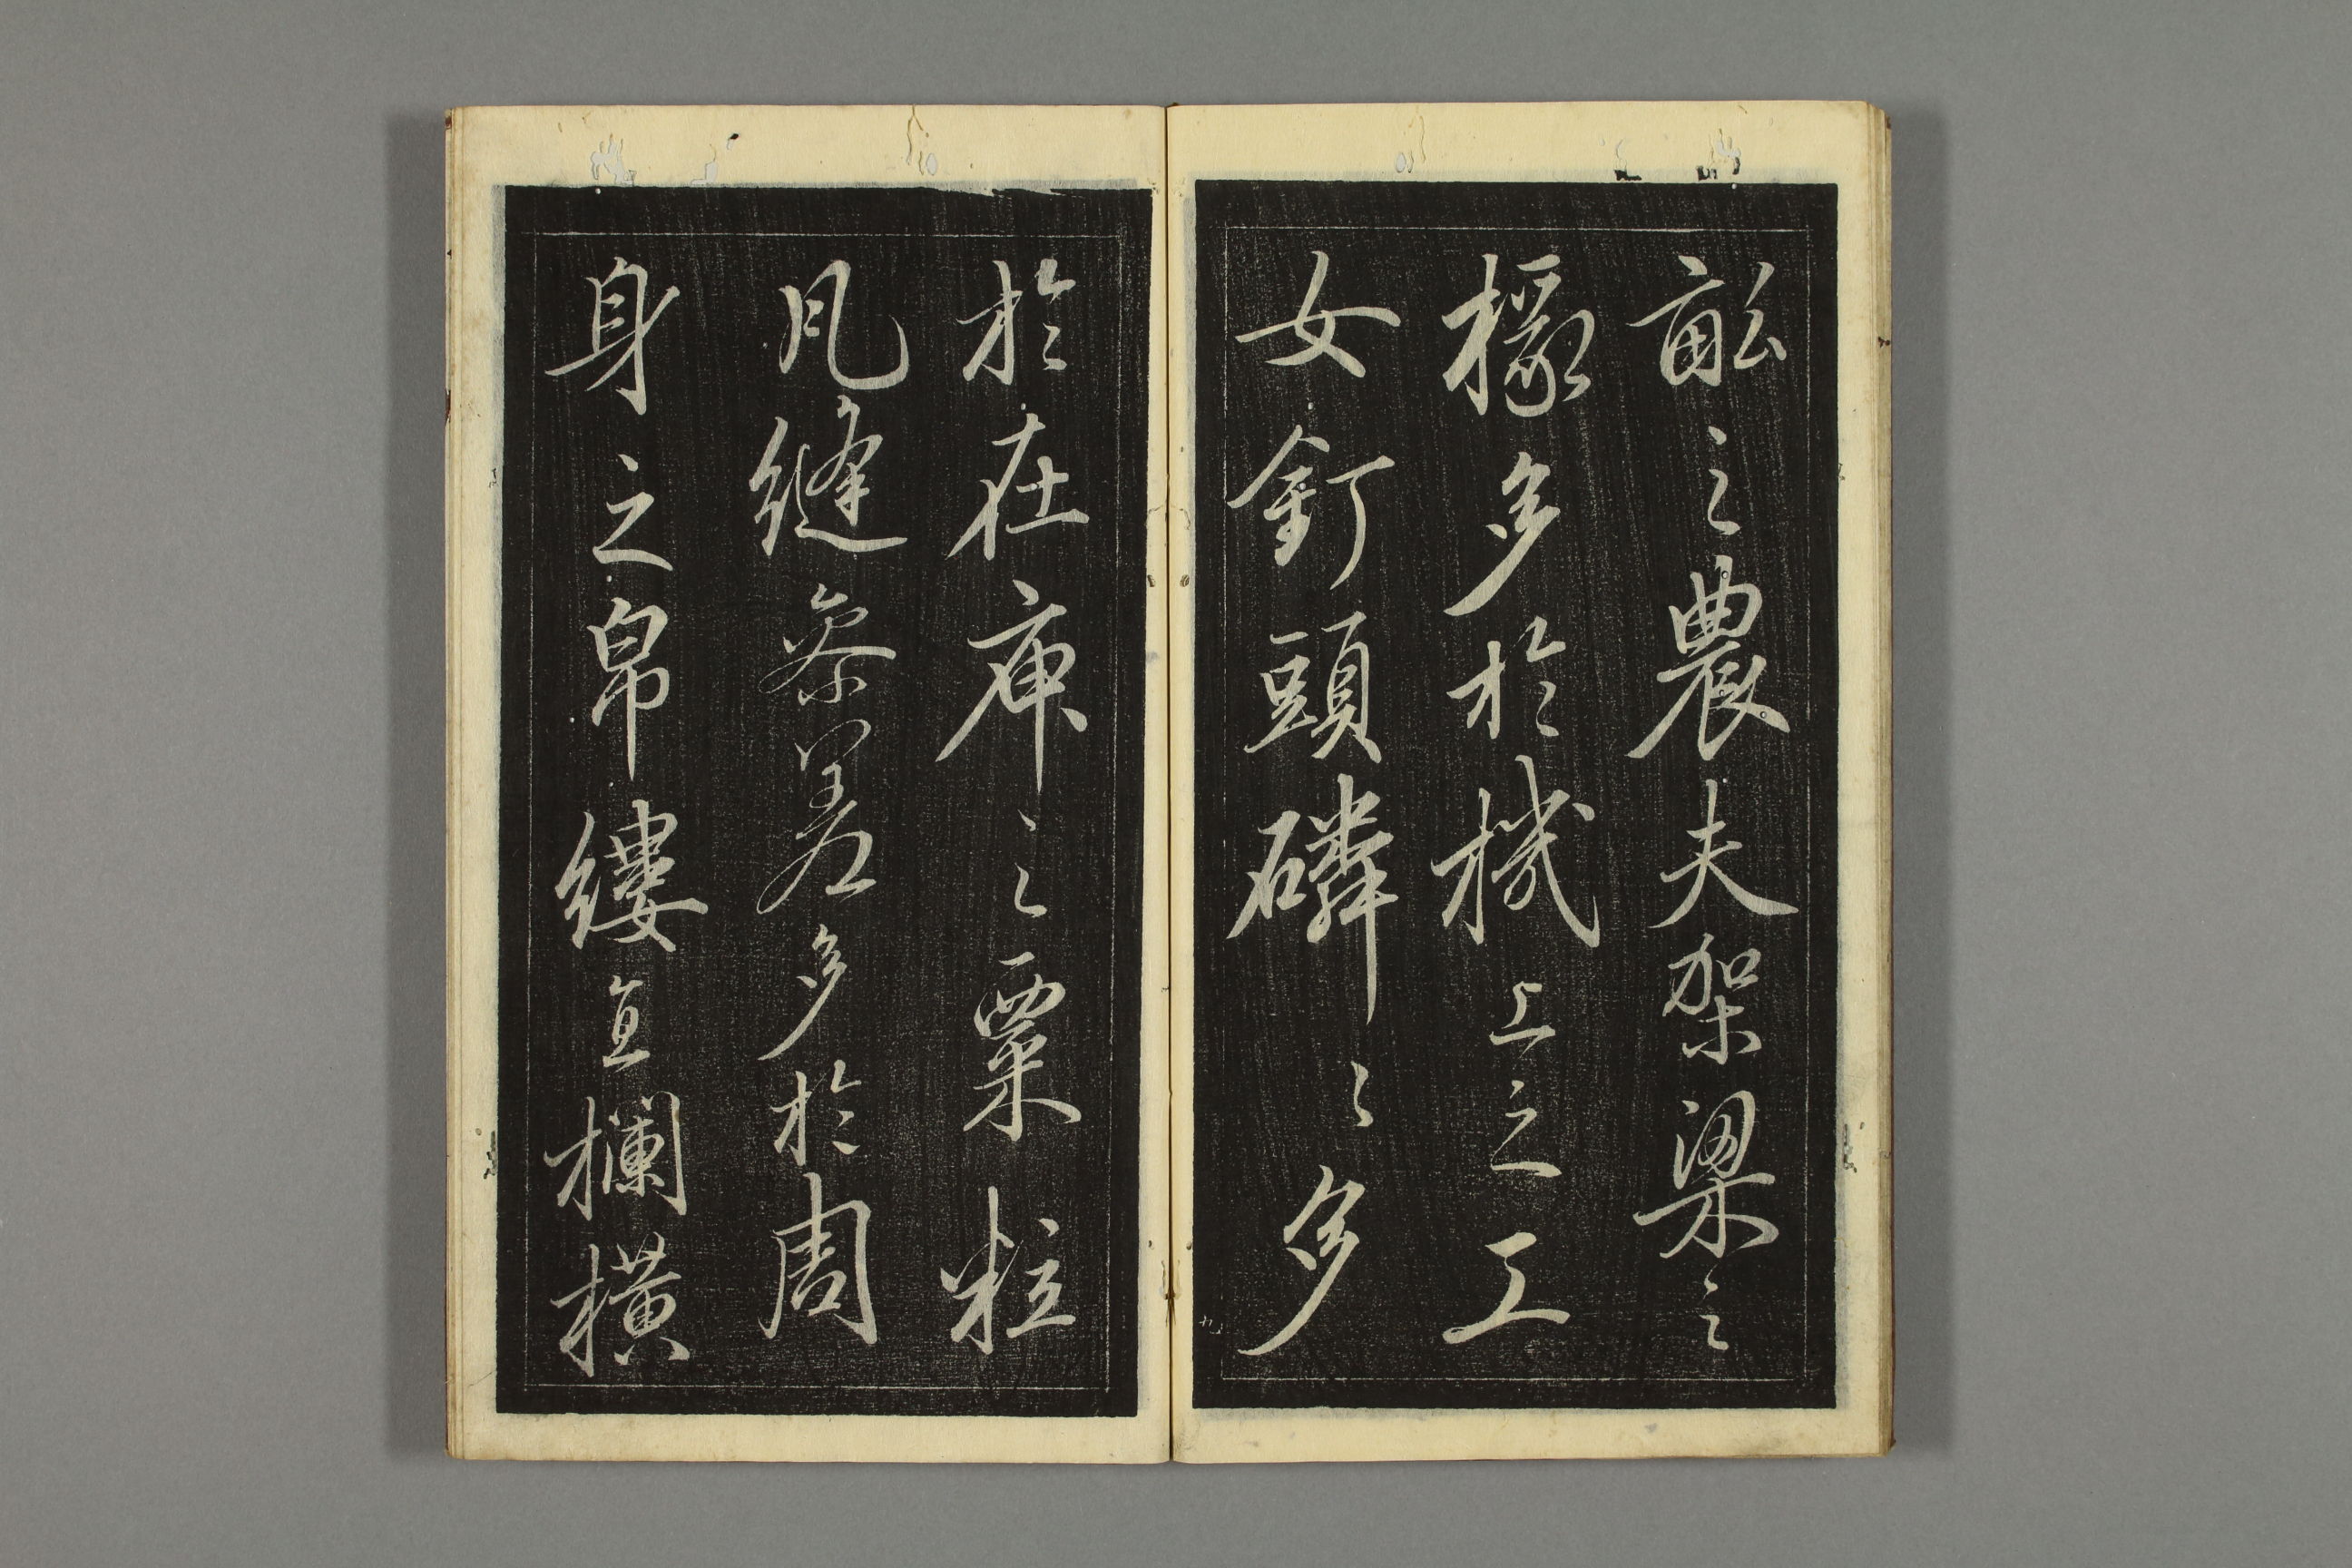 畝之農夫架梁之
椽多於機上之工
女釘頭磷々多
於在庾之粟粒
瓦縫參差多於周
身之帛縷直欄橫